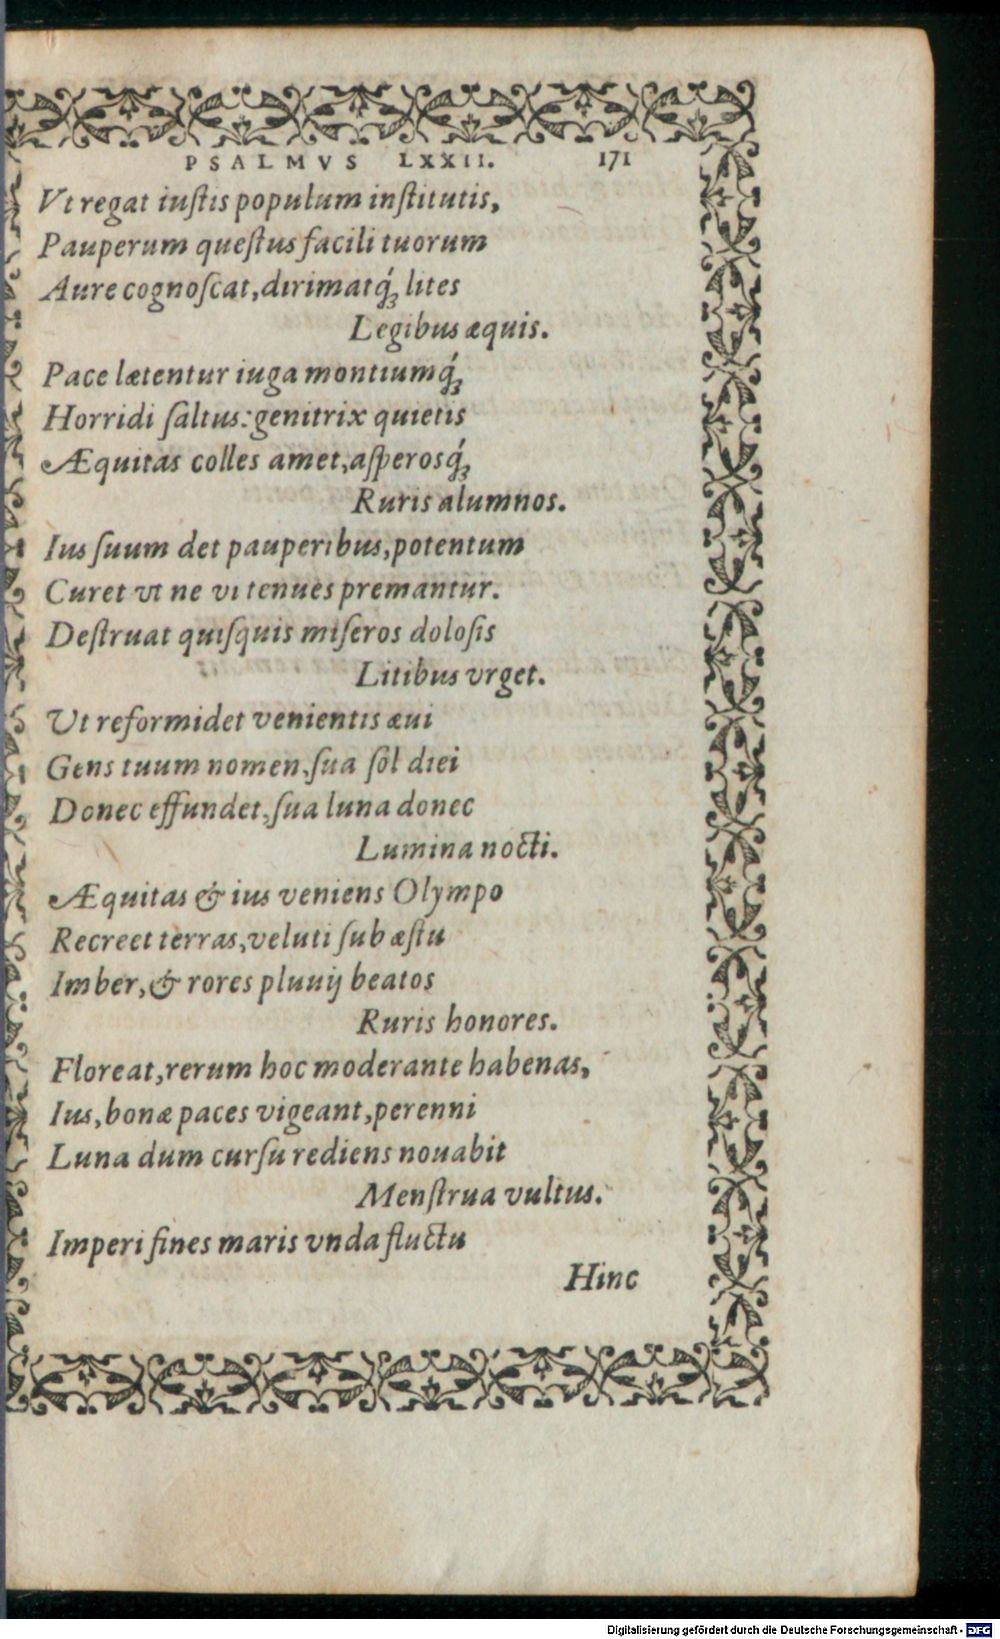 PSALMVS LXXII. 171
Vt regat iuſtis populum inſtitutis,
Pauperum queſtus facili tuorum
Aure cognoſcat, dirimatq́ꝫ lites
Legibus æquis.
Pace lætentur iuga montiumq́ꝫ
Horridi ſaltus: genitrix quietis
Æquitas colles amet, aſperosq́ꝫ
Ruris alumnos.
Ius ſuum det pauperibus, potentum
Curet vt ne vi tenues premantur.
Deſtruat quiſquis miſeros doloſis
Litibus vrget.
Ut reformidet venientis æui
Gens tuum nomen, ſua ſol diei
Donec effundet, ſua luna donec
Lumina nocti.
Æquitas & ius veniens Olympo
Recreet terras, veluti ſub æſtu
Imber, & rores pluuij beatos
Ruris honores.
Floreat, rerum hoc moderante habenas,
Ius, bonæ paces vigeant, perenni
Luna dum curſu rediens nouabit
Menſtrua vultus.
Imperi fines maris vnda fluctu
Hinc
Digitalisierung gefördert durch die Deutsche Forschungsgemeinschaft - DFG